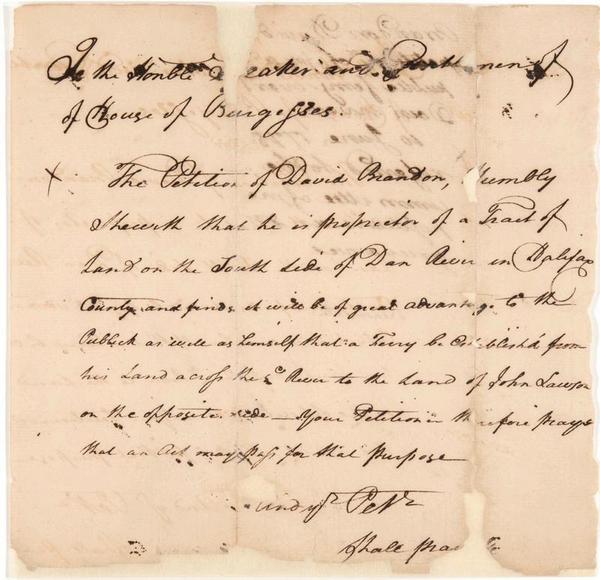 To the Honble Speaker and Gentlemen of
of House of Burgesses.
The Petition of David Brandon, Humbly
Sheweth that he is proprietor of a Tract of
Land on the South side of Dan River in Halifax
County and finds it will be of great advantage to the
Publick as well as himself that a Ferry be Establish'd from
his Land across the sd River to the Land of John Lawson
on the opposite side — Your Petitioner therefore prays
that an Act may pass for that purpose
and yr Petr
shall pray